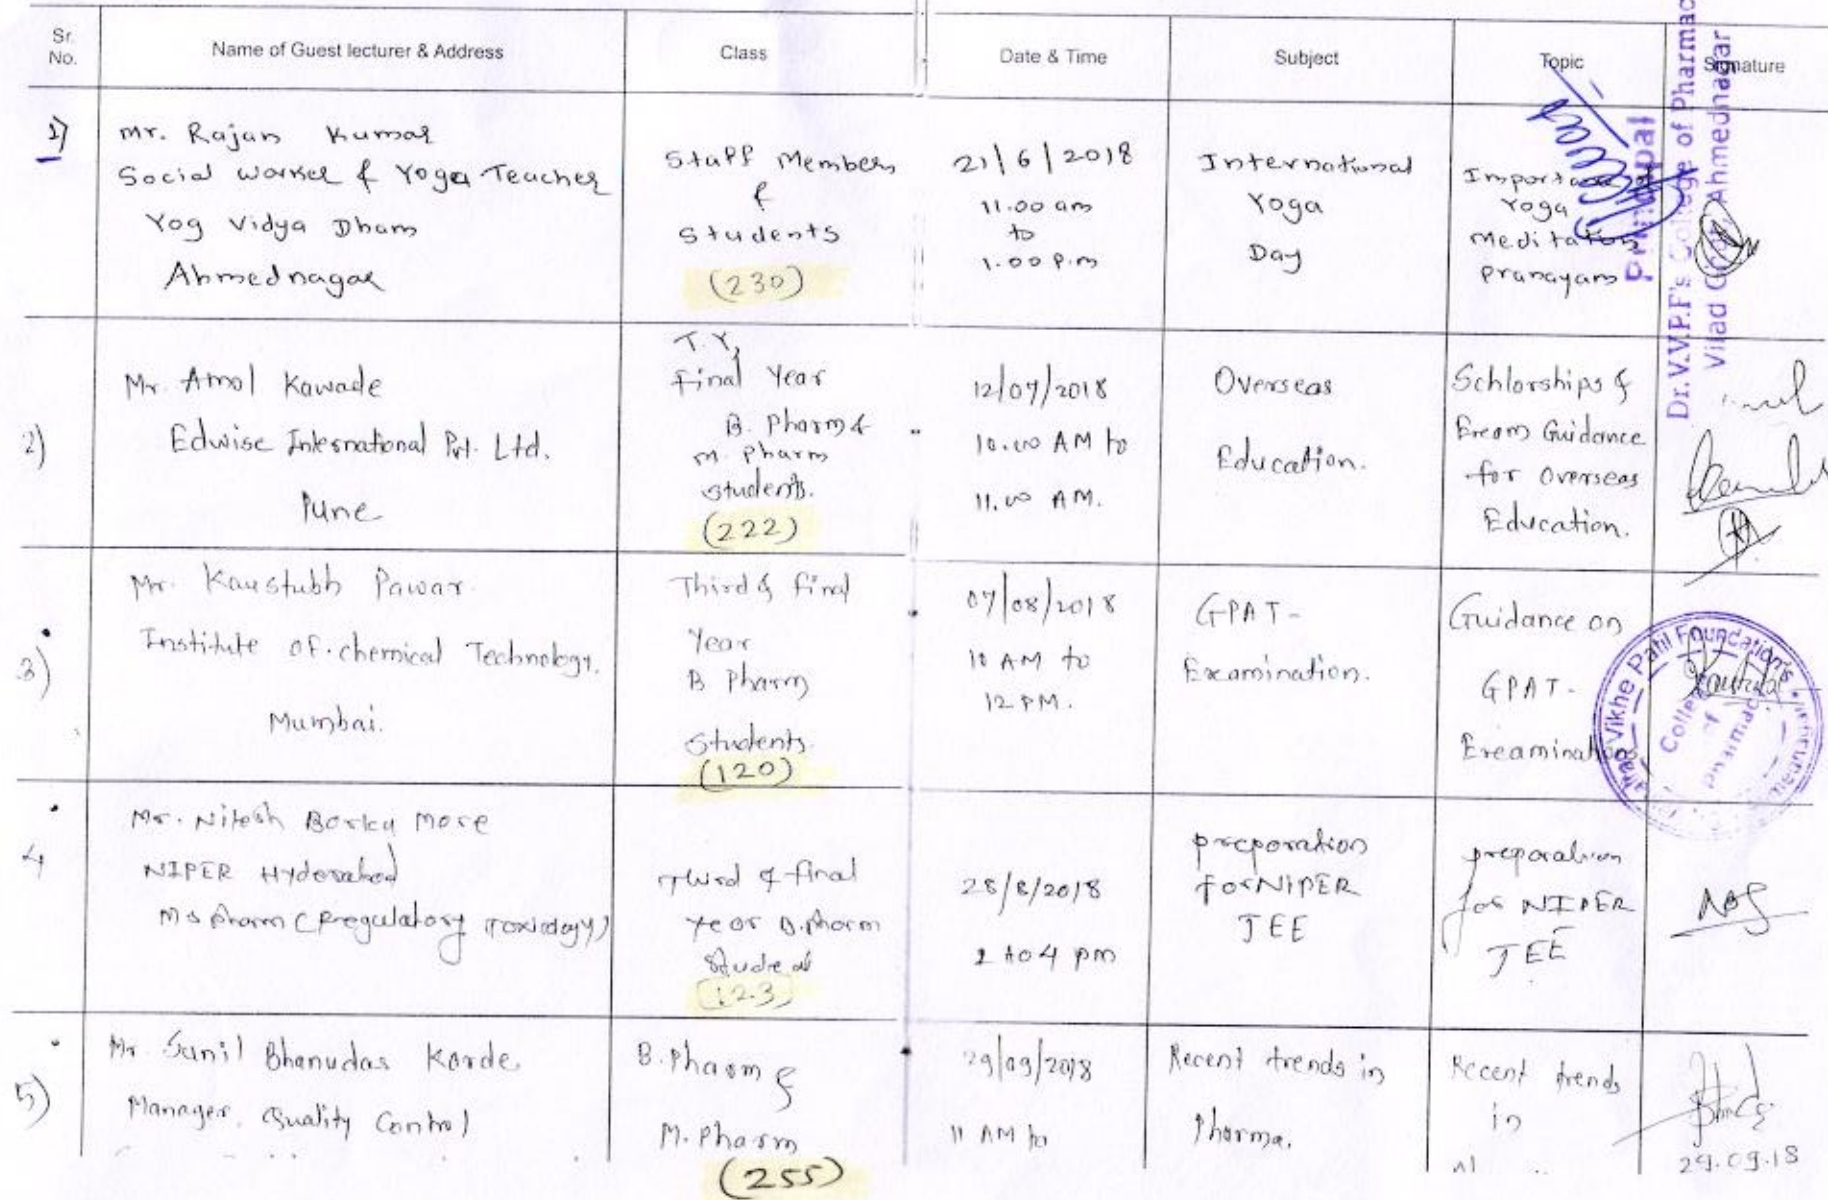 Sr. No.
Name of Guest lecturer & Address
Class
Date & Time
Subject
Topic
Signature
1)
Mr. Rajan Kumar
Social worker & Yoga Teacher
Yog Vidya Dham
Ahmednagar
Staff Members
&
Students
(230)
21/6/2018
11.00 am
to
1.00 p.m
International
Yoga
Day
Yoga
Meditation
Pranayam
2)
Mr. Amol Kawade
Edwise International Pvt. Ltd.
Pune
T.Y,
Final Year
B. Pharm &
M. Pharm
Students.
(222)
12/07/2018
10.00 AM to
11.00 AM.
Overseas
Education.
Schlorships &
Exam Guidance
for Overseas
Education.
3)
Mr. Kaustubh Pawar.
Institute of chemical Technology.
Mumbai.
Third & final
Year
B Pharm
Students.
(120)
07/08/2018
10 AM to
12 PM.
GPAT-
Examination.
Guidance on
GPAT-
Examination
4
Mr. Nitesh More
NIPER Hyderabad
MS pharm (Regulatory Toxicology)
Third & final
Year B.pharm
(123)
28/8/2018
2 to 4 pm
preparation
for NIPER
JEE
preparation
for NIPER
JEE
5)
Mr. Sunil Bhanudas Korde.
Manager, Quality Control
B. Pharm &
M. Pharm
(255)
29/09/2018
11 AM to
Recent trends in
Pharma.
Recent trends
in
29.09.18
Principal
Dr. V.V.P.F's College of Pharmac
Vilad Ghat, Ahmednagar
Vikhe Patil Foundation's
College of Pharmacy